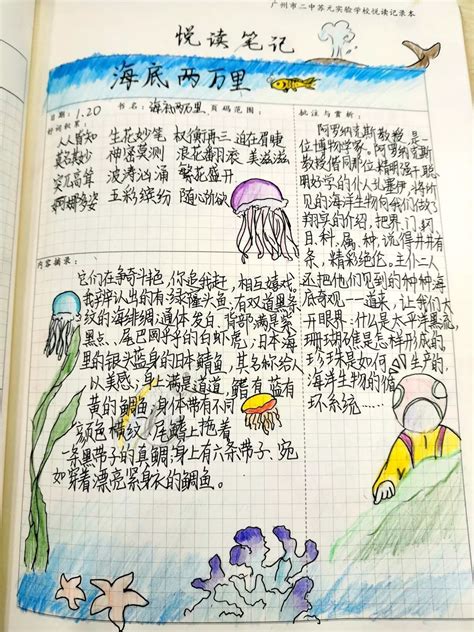 广州市二中苏元实验学校悦读记录本
悦读笔记
海底两万里
日期：1.20 书名：海底两万里 页码范围：
好词积累：
人人皆知 生花妙笔 权衡再三 迫在眉睫
莫名其妙 神密莫测 浪花番滚 美滋滋
突兀高耸 波涛汹涌 繁花盛开
婀娜多姿 五彩缤纷 随心所欲
内容摘录：
它们在争奇斗艳，你追我赶，相互嬉戏。
我辨认出的有：绿隆头鱼；有双道黑条
纹的海绯鲷；通体发白，背部满是紫
黑点、尾巴圆乎乎的白虾虎；日本海
里的银牙蓝身的日本鲭鱼，其名称给人
以美感；身上满是道道，鳍有蓝有
黄的鲷鱼；身体带有不同
颜色横纹、尾鳍上拖着
一条黑带子的真鲷；身上有六条带子、宛
如穿着漂亮紧身衣的鲷鱼。
批注与赏析：
阿罗纳克斯教授是一
位博物学家。阿罗纳克斯
教授借同那位精明强干聪
明好学的仆人孔塞伊，将所
见的海洋生物向我们做了
翔实的介绍，把界、门、纲、
目、科、属、种，说得井井有
条，精彩绝伦，主仆二人
还把他们见到的种种海
底奇观一一道来，让我们大
开眼界：什么是太平洋黑流，
珊瑚礁是怎样形成的，
珍珠是如何生产的，
海洋生物的循
环系统……